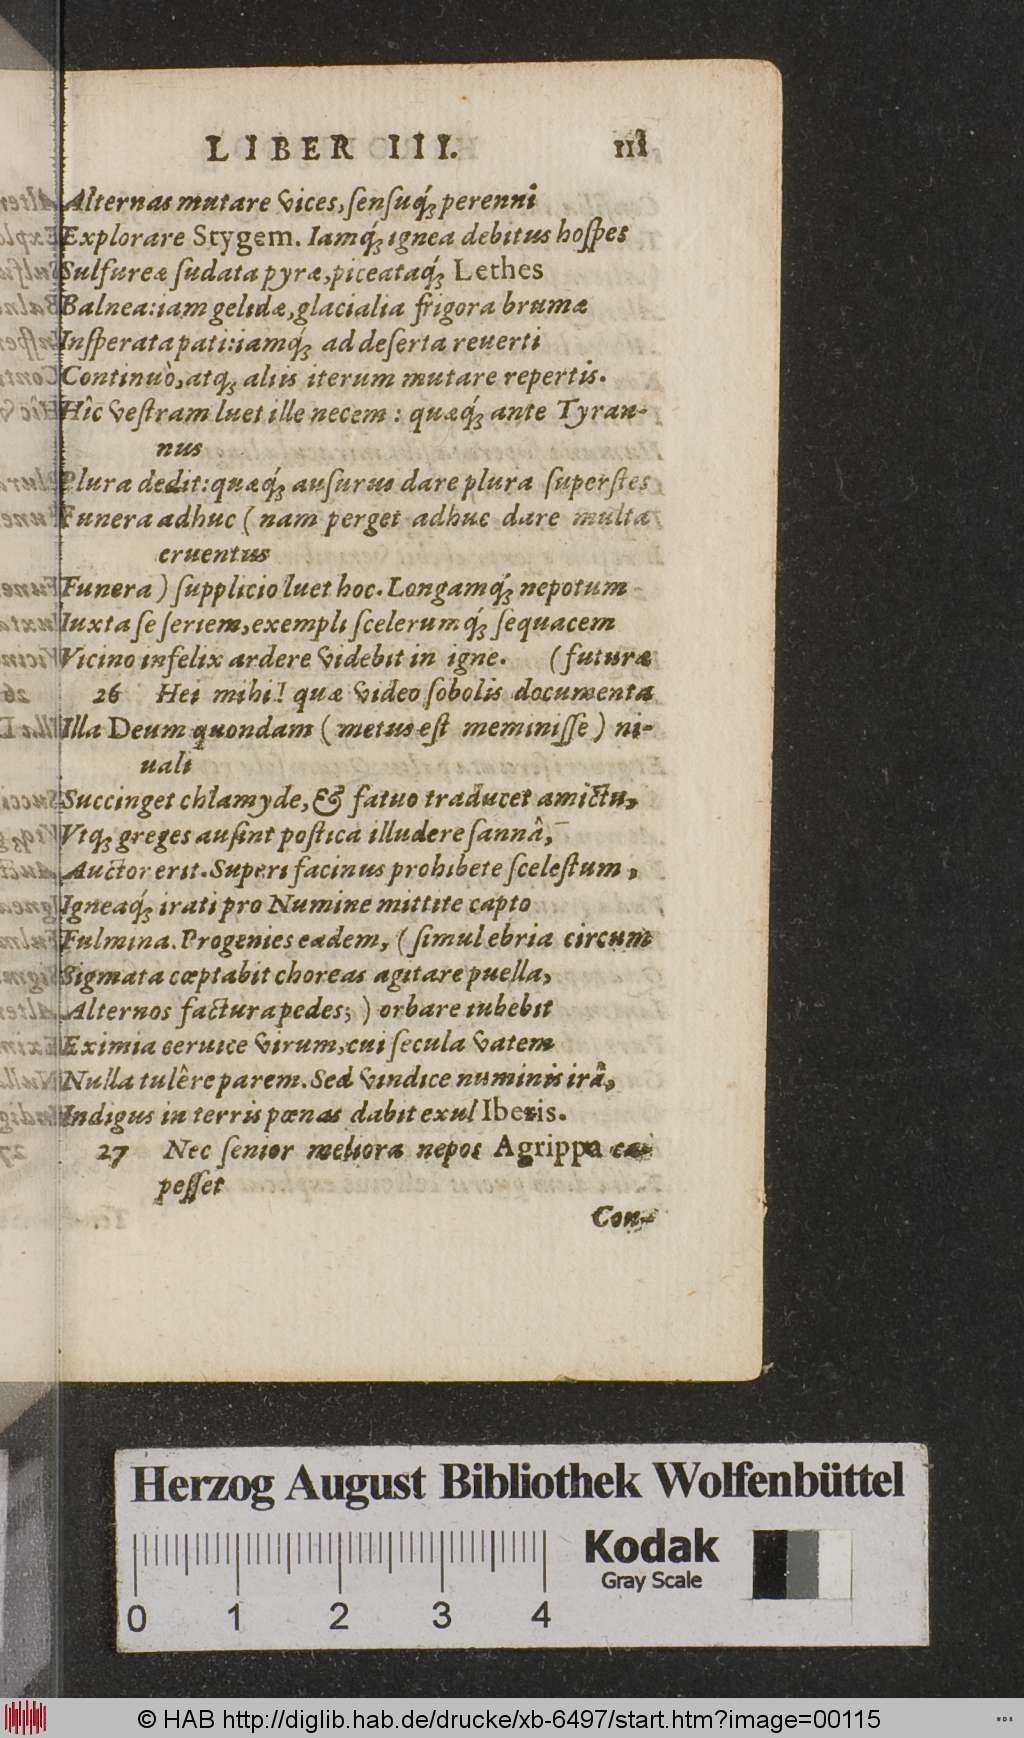 LIBER III. 111
Alternas mutare vices, sensuq́; perenni
Explorare Stygem. Iamq́; ignea debitus hospes
Sulfureæ sudata pyræ, piceataq́; Lethes
Balnea: iam gelidæ, glacialia frigora brumæ
Insperata pati: iamq́; ad deserta reuerti
Continuò, atq; aliis iterum mutare repertis.
Hîc vestram luet ille necem : quæq́; ante Tyran-
nus
Plura dedit: quæq́; ausurus dare plura superstes
Funera adhuc ( nam perget adhuc dare multa
cruentus
Funera ) supplicio luet hoc. Longamq́; nepotum
Iuxta se seriem, exempli scelerumq́; sequacem
Vicino infelix ardere videbit in igne. ( futuræ
26 Hei mihi! quæ video sobolis documenta
Illa Deum quondam ( metus est meminisse ) ni-
uali
Succinget chlamyde, & fatuo traducet amictu,
Vtq; greges ausint postica illudere sannâ,
Auctor erit. Superi facinus prohibete scelestum,
Igneaq́; irati pro Numine mittite capto
Fulmina. Progenies eadem, ( simul ebria circum
Sigmata cœptabit choreas agitare puella,
Alternos factura pedes; ) orbare iubebit
Eximia ceruice virum, cui secula vatem
Nulla tulêre parem. Sed vindice numinis irâ,
Indigus in terris pœnas dabit exul Iberis.
27 Nec senior meliora nepos Agrippa ca-
pesset
Con-
Herzog August Bibliothek Wolfenbüttel
Kodak
Gray Scale
0 1 2 3 4
© HAB http://diglib.hab.de/drucke/xb-6497/start.htm?image=00115